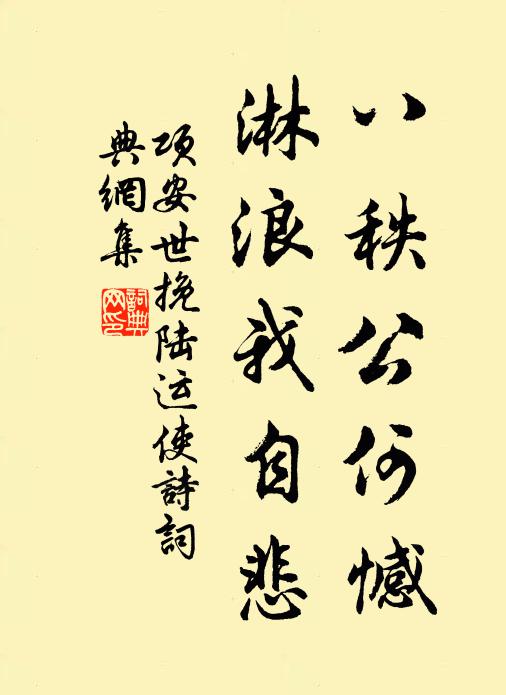 八秩公何憾
淋浪我自悲
项安世挽陆运使詩詞
典網集
詞典
网印